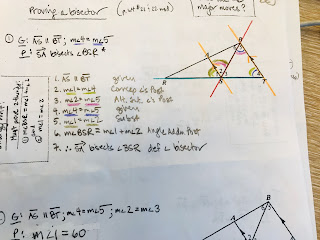 Proving ∠ bisector
major moves?
① G: AS ∥ BT ; m∠4 = m∠5
P: SA bisects ∠BSR
1. AS ∥ BT given
2. m∠1 = m∠4 Corresp ∠'s Post
3. m∠2 = m∠5 Alt. Int ∠'s Post
4. m∠4 = m∠5 given
5. m∠1 = m∠2 Subst
6. m∠BSR = m∠1 + m∠2 Angle Addn Post
7. ∴ SA bisects ∠BSR def ∠ bisector
② G: AS ∥ BT ; m∠4 = m∠5 ; m∠2 = m∠3
P: m∠1 = 60
B